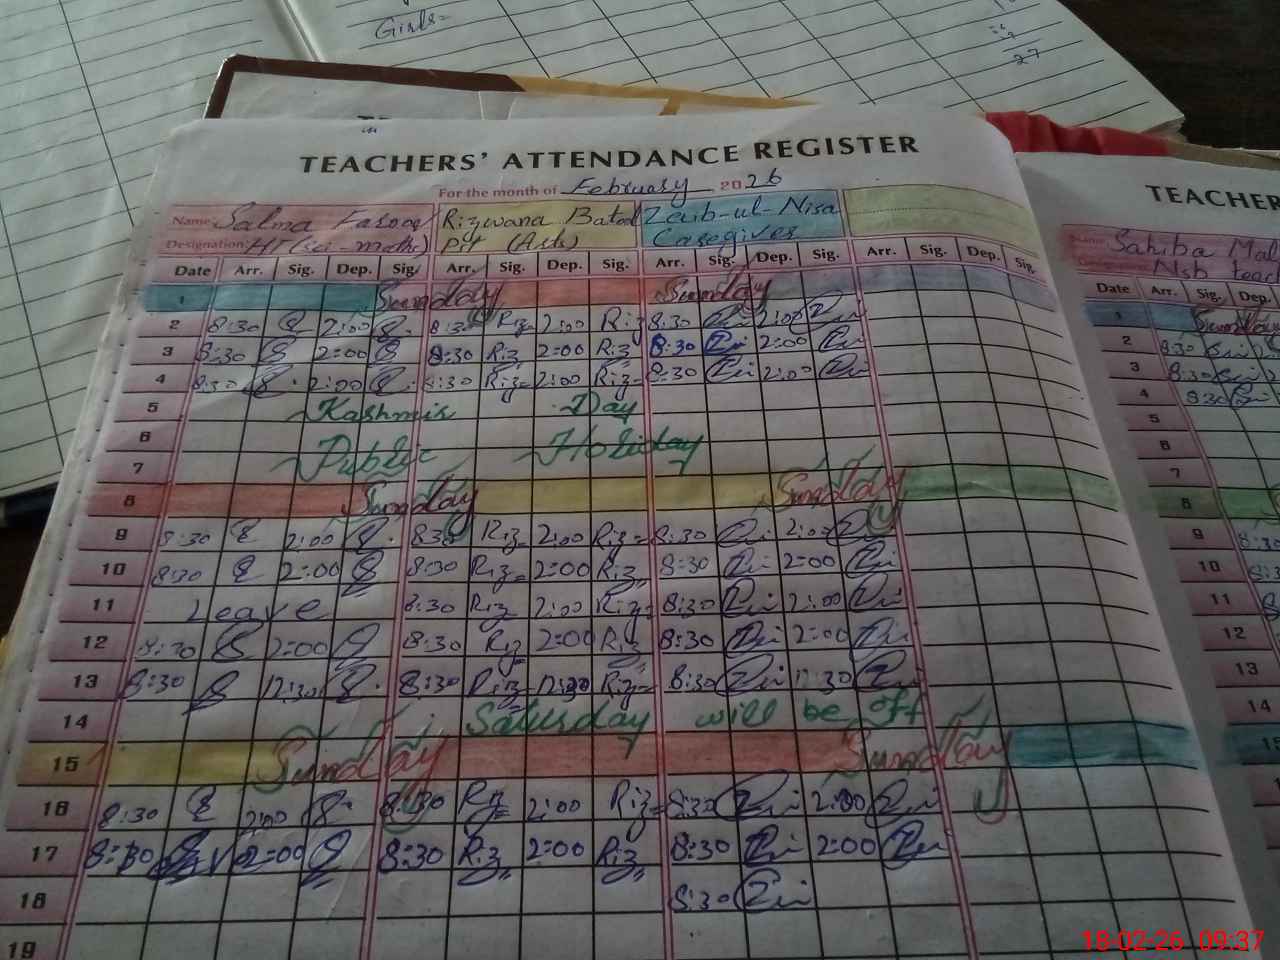 Girls=
27
TEACHERS' ATTENDANCE REGISTER
For the month of February 2026
Name: Salma Farooq Rizwana Batool Zaib-ul-Nisa
Designation: HT (Sci-math) PST (Arts) Caregiver
Date Arr. Sig. Dep. Sig. Arr. Sig. Dep. Sig. Arr. Sig. Dep. Sig. Arr. Sig. Dep. Sig.
1 Sunday Sunday
2 8:30 2:00 8:30 Riz 2:00 Riz 8:30 2:00
3 8:30 2:00 8:30 Riz 2:00 Riz 8:30 2:00
4 8:30 2:00 8:30 Riz 2:00 Riz 8:30 2:00
5 Kashmir Day
6
Public Holiday
7
8 Sunday Sunday
9 8:30 2:00 8:30 Riz 2:00 Riz 8:30 2:00
10 8:30 2:00 8:30 Riz 2:00 Riz 8:30 2:00
11 Leave 8:30 Riz 2:00 Riz 8:30 2:00
12 8:30 2:00 8:30 Riz 2:00 Riz 8:30 2:00
13 8:30 12:30 8:30 Riz 12:30 Riz 8:30 12:30
14 Saturday will be off
15 Sunday Sunday
16 8:30 2:00 8:30 Riz 2:00 Riz 8:30 2:00
17 8:30 2:00 8:30 Riz 2:00 Riz 8:30 2:00
18 8:30
19
TEACHER
Name: Sahiba Mal
Nsb teac
Date Arr. Sig. Dep.
1 Sunday
2 8:30
3 8:30
4 8:30
5
6
7
8
9 8:30
10 8:3
11 8
12
13
14
15
18-02-26 09:37